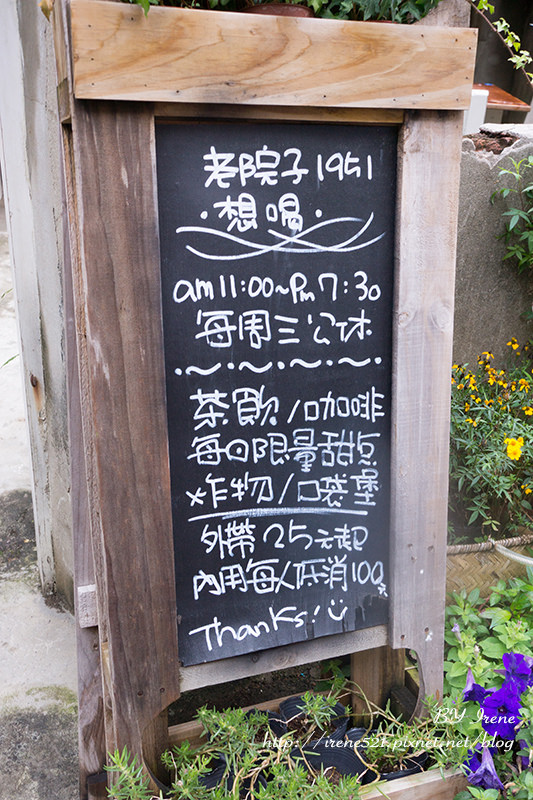 老院子1951
·想喝·
am11:00~Pm7:30
每周三公休
·~·~·~·~·
茶飲/咖啡
每日限量甜点
炸物/口袋堡
外帶25元起
內用每人低消100元
Thanks!
BY Irene
http://irene521.pixnet.net/blog